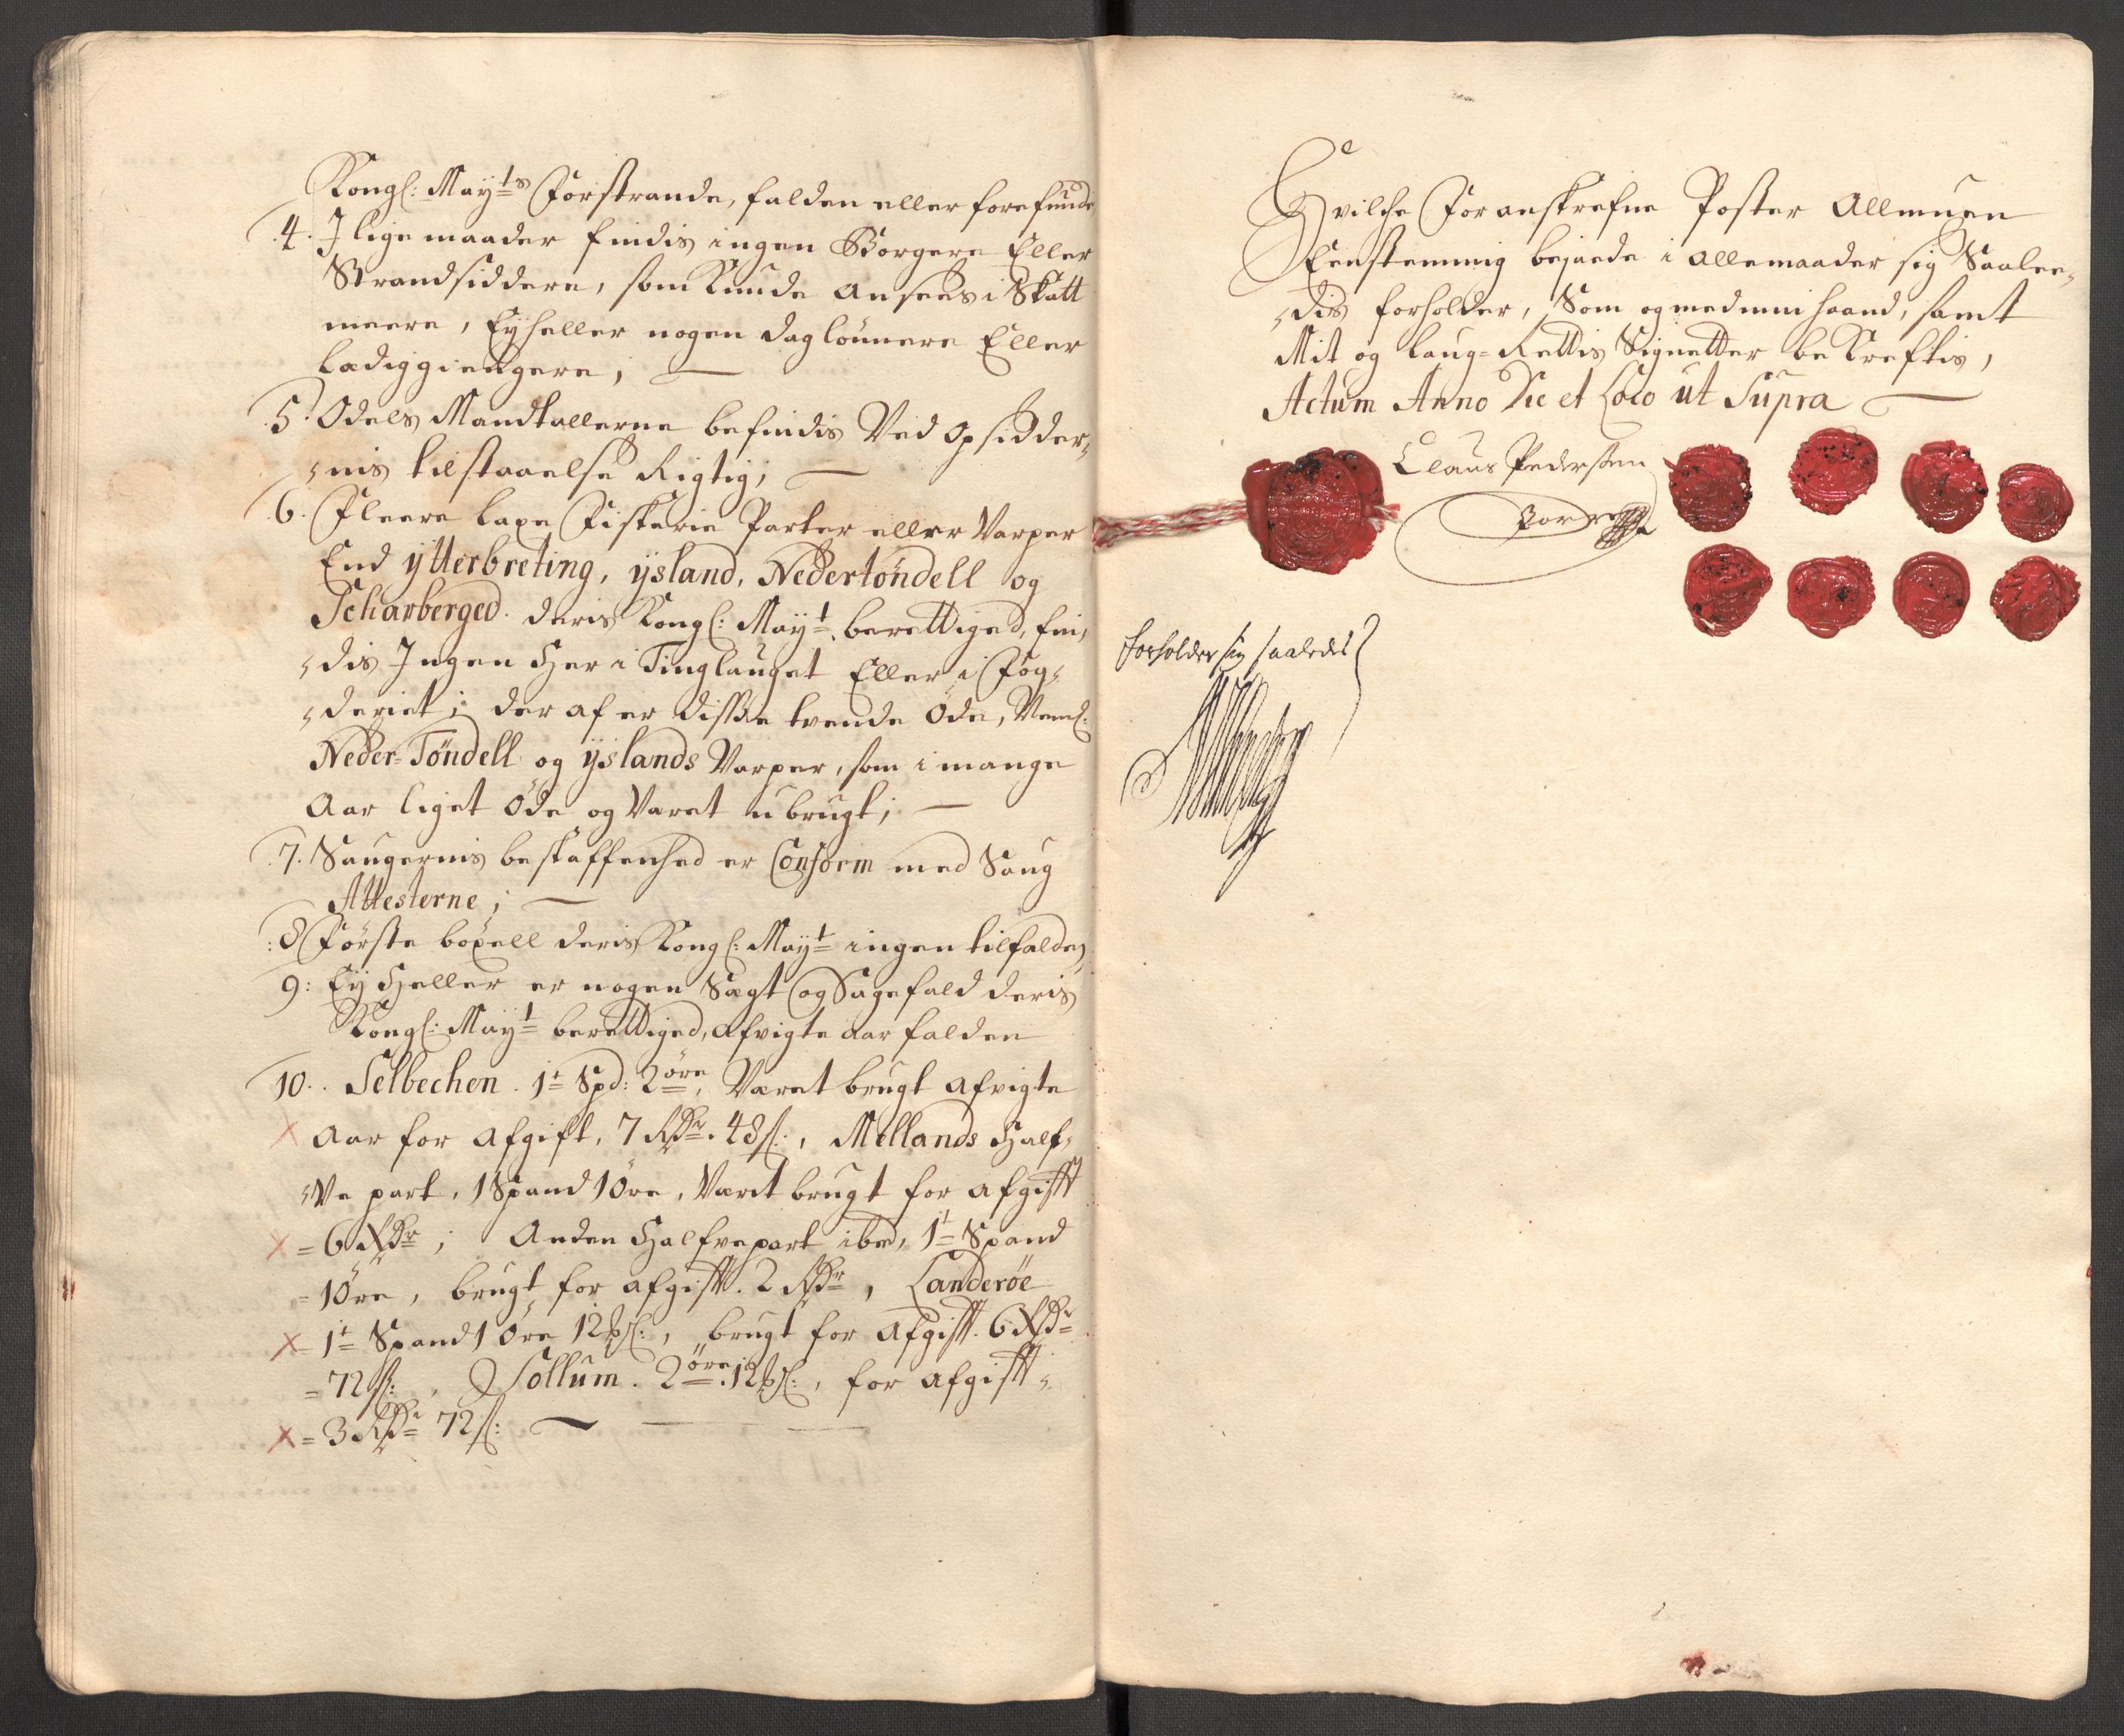 Kongl: Mayts Forstrande, falden eller forefunde,
4. I lige maader findis ingen Borgere Eller
Strandsiddere, som kunde ansees i Skatt
meere, Ey heller nogen daglönnere Eller
Lædiggiengere;
5. Odels Mandtallerne befindis Ved opsidder„
„nis tilstaaelse Rigtig;
6. Fleere Laxe Fiskerie Parter eller Varper
End ytterbreting, ysland, Nedertöndell og
Scharberged. deris Kongl: Mayt. berettiged, fin„
„dis Ingen Her i Tinglauget Eller i Fog„
„deriet; der af er disse tvende öde, Neml:
Neder-Töndell og yslands Varper, som i mange
Aar liget öde og Varet ubrugt;
7. Saugernis beskaffenhed er Conform med Saug
Attesterne;
:8 Förste böxell deris Kongl: Mayt ingen tilfalden
9: Ey Heller er nogen Sagt og Sagefald deris
Kongl: Mayt berettiged, afvigte aar falden
10.. Selbechen. 1t Spd: 2 öre, Varet brugt afvigte
Aar for afgift, 7 Rdr. 48 s:, Mellands Half„
„Ve part, 1 Spand 1 Öre, Varet brugt for afgifft
= 6 Rdr; Anden Halfvepart ibm, 1t Spand
= 1 Öre, brugt for afgifft. 2 Rdr, Landeröe
= 1t Spand 1 Öre 12 msl:, brugt for afgifft. 6 Rdr
= 72 s:, Sollum. 2 öre 12 msl:, for afgifft„
= 3 Rdr 72 s:
Hvilche Foranskrefne Poster Allmuen
Eenstemmig bejaede i allemaader sig Saalee„
„dis forholder, Som og med min haand, samt
Mit og Laug-Rettis Signetter beKreftis,
Actum Anno Die et Loco ut Supra
Claus Pedersen
forholder sig saaledes